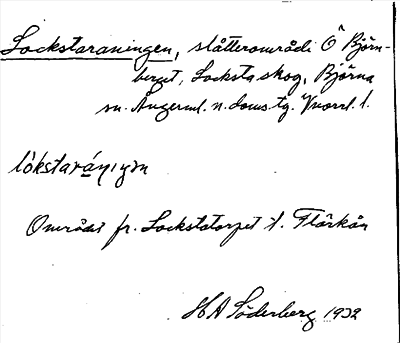 Lockstaraningen, slåtterområde Ö Björn-
berget, Locksta skog, Björna
sn. Ångerml. n. doms. tg. Vnorrl. l.
lòkstaráṇıŋın
Området fr. Lockstatorpet t. Flärkån
H A Söderberg 1932